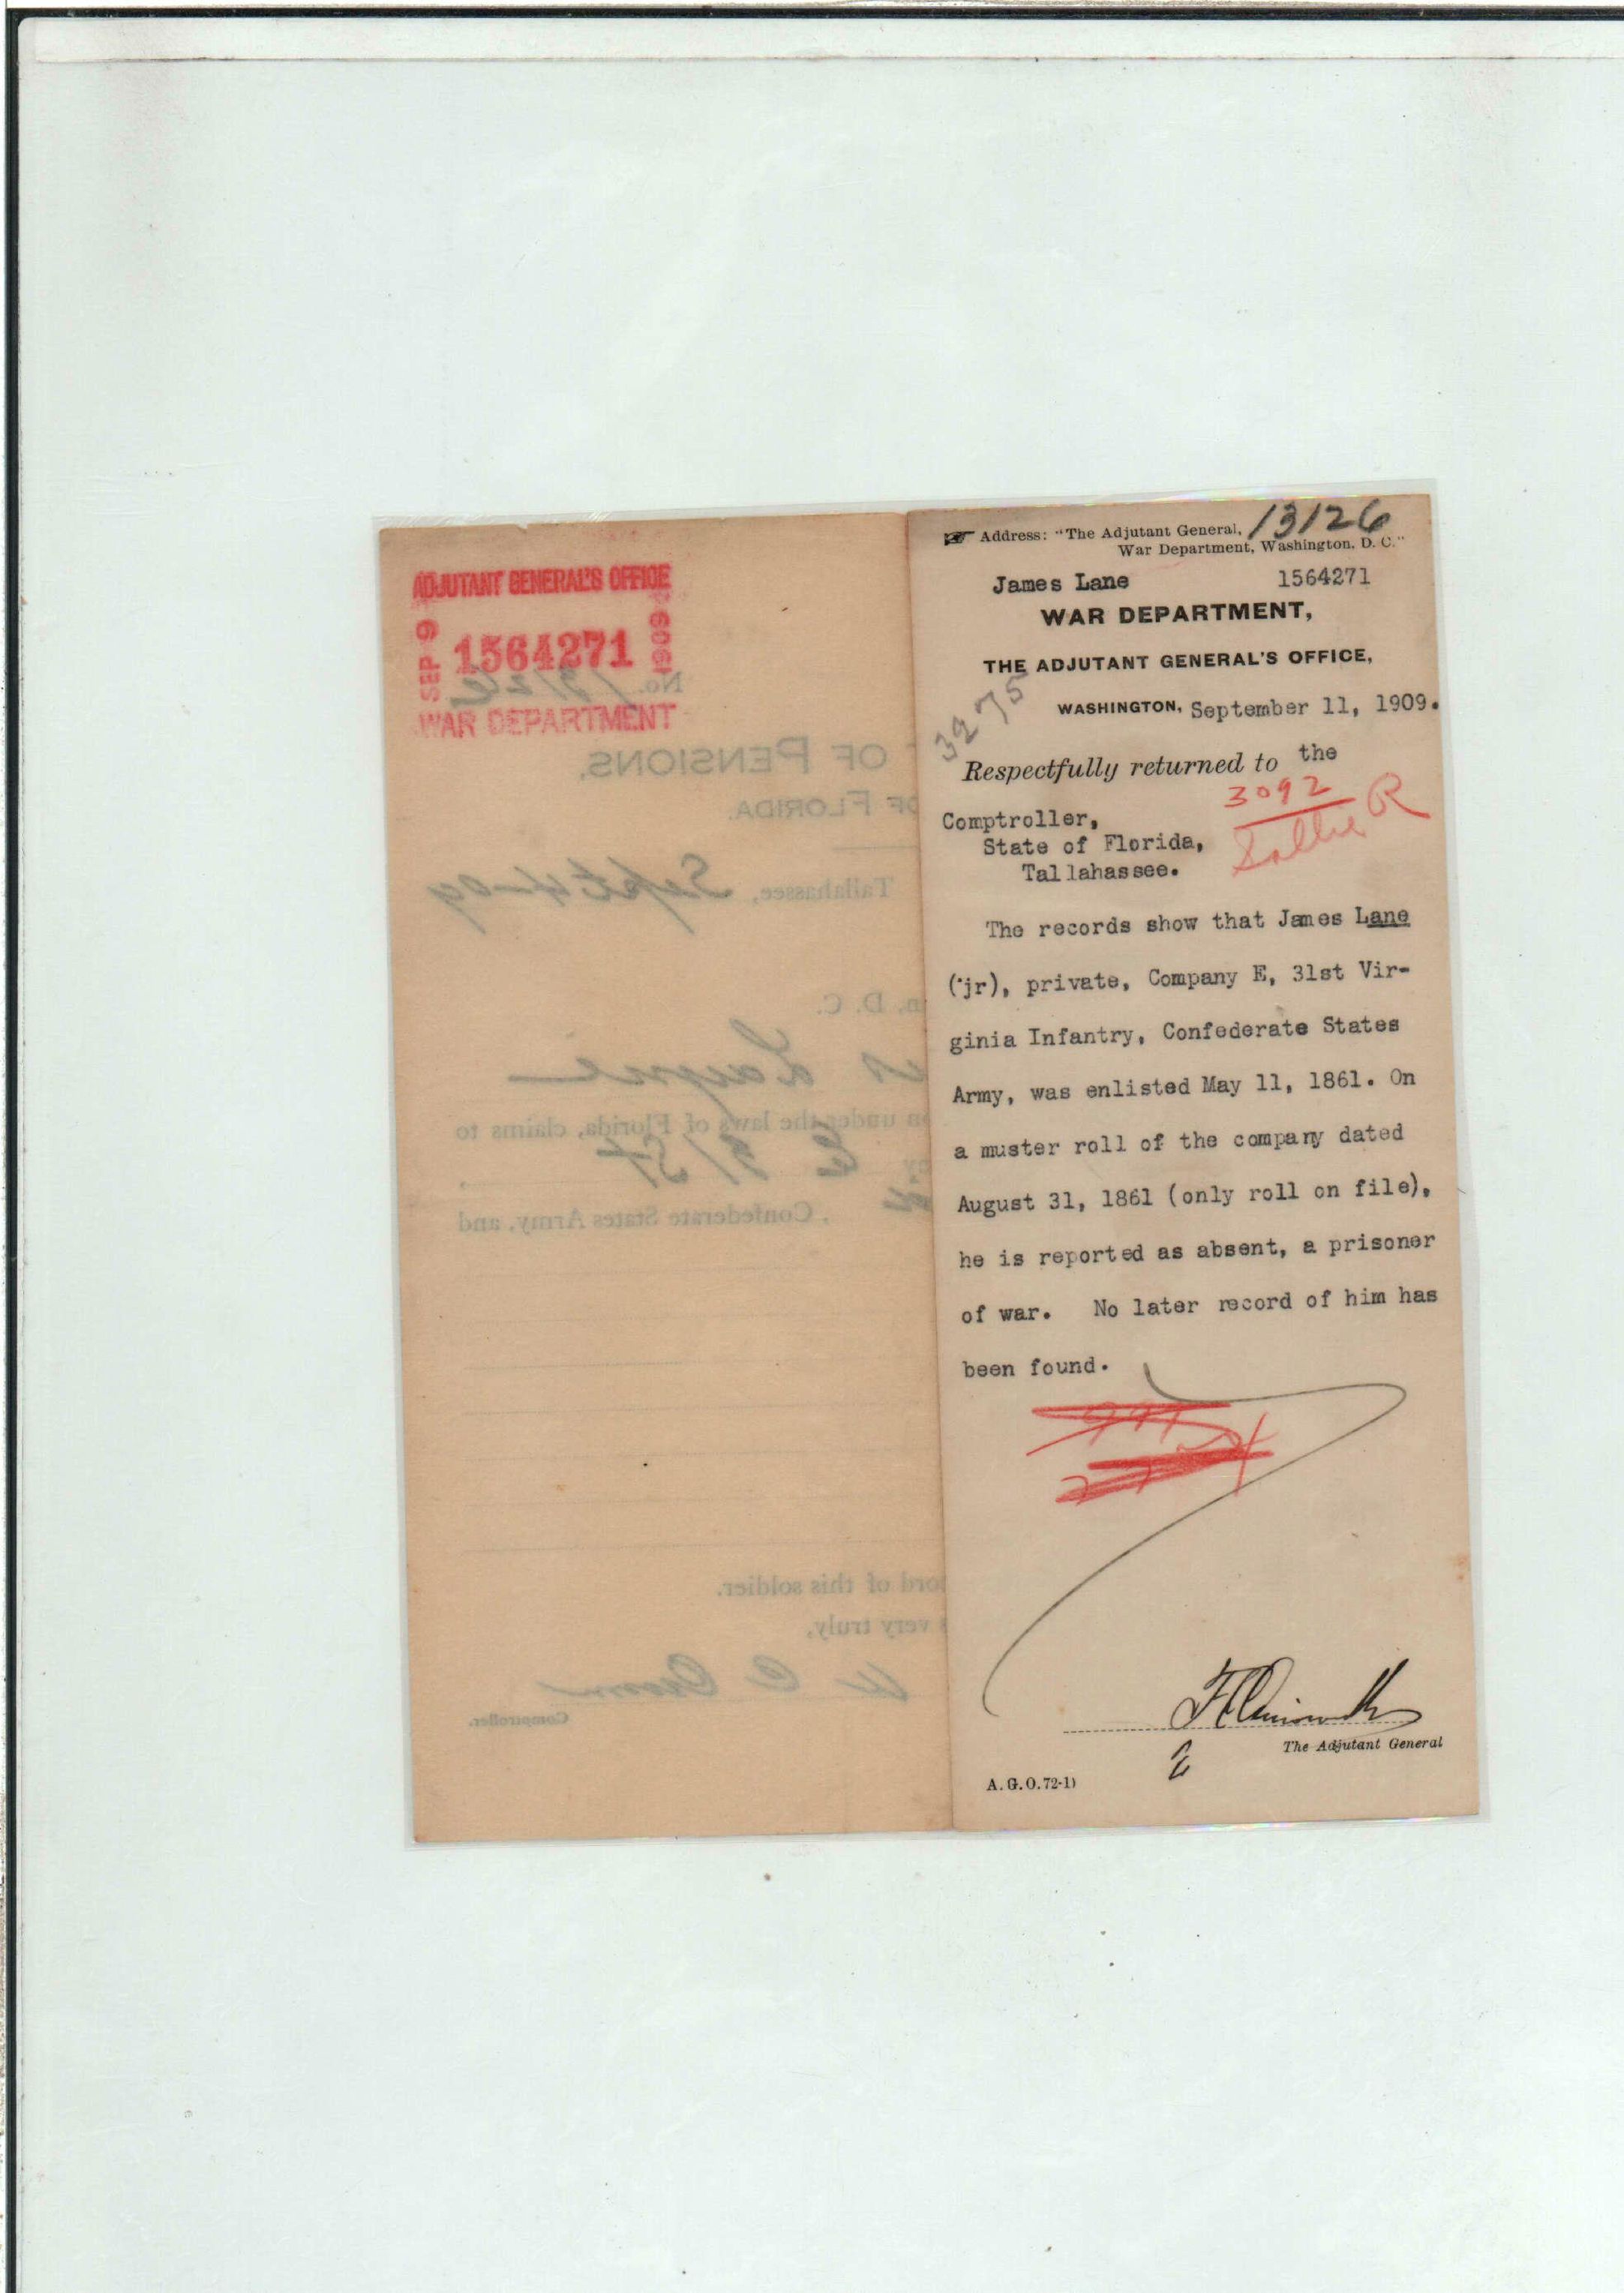 ADJUTANT GENERAL'S OFFICE
SEP 9 1564271 1909
No. 13126
WAR DEPARTMENT
OF PENSIONS,
OF FLORIDA.
Tallahassee, Sept 4-09
n, D. C.
es Layne
n under the laws of Florida, claims to
E 31st
, Confederate States Army, and
ord of this soldier.
very truly,
Comptroller.
Address: "The Adjutant General, 13126
War Department, Washington, D. C."
James Lane 1564271
WAR DEPARTMENT,
THE ADJUTANT GENERAL'S OFFICE,
3275
WASHINGTON, September 11, 1909.
Respectfully returned to the
3092
Comptroller,
State of Florida,
Sallie R
Tallahassee.
The records show that James Lane
(jr), private, Company E, 31st Vir-
ginia Infantry, Confederate States
Army, was enlisted May 11, 1861. On
a muster roll of the company dated
August 31, 1861 (only roll on file),
he is reported as absent, a prisoner
of war. No later record of him has
been found.
F C Ainsworth
The Adjutant General
A. G. O. 72-1)